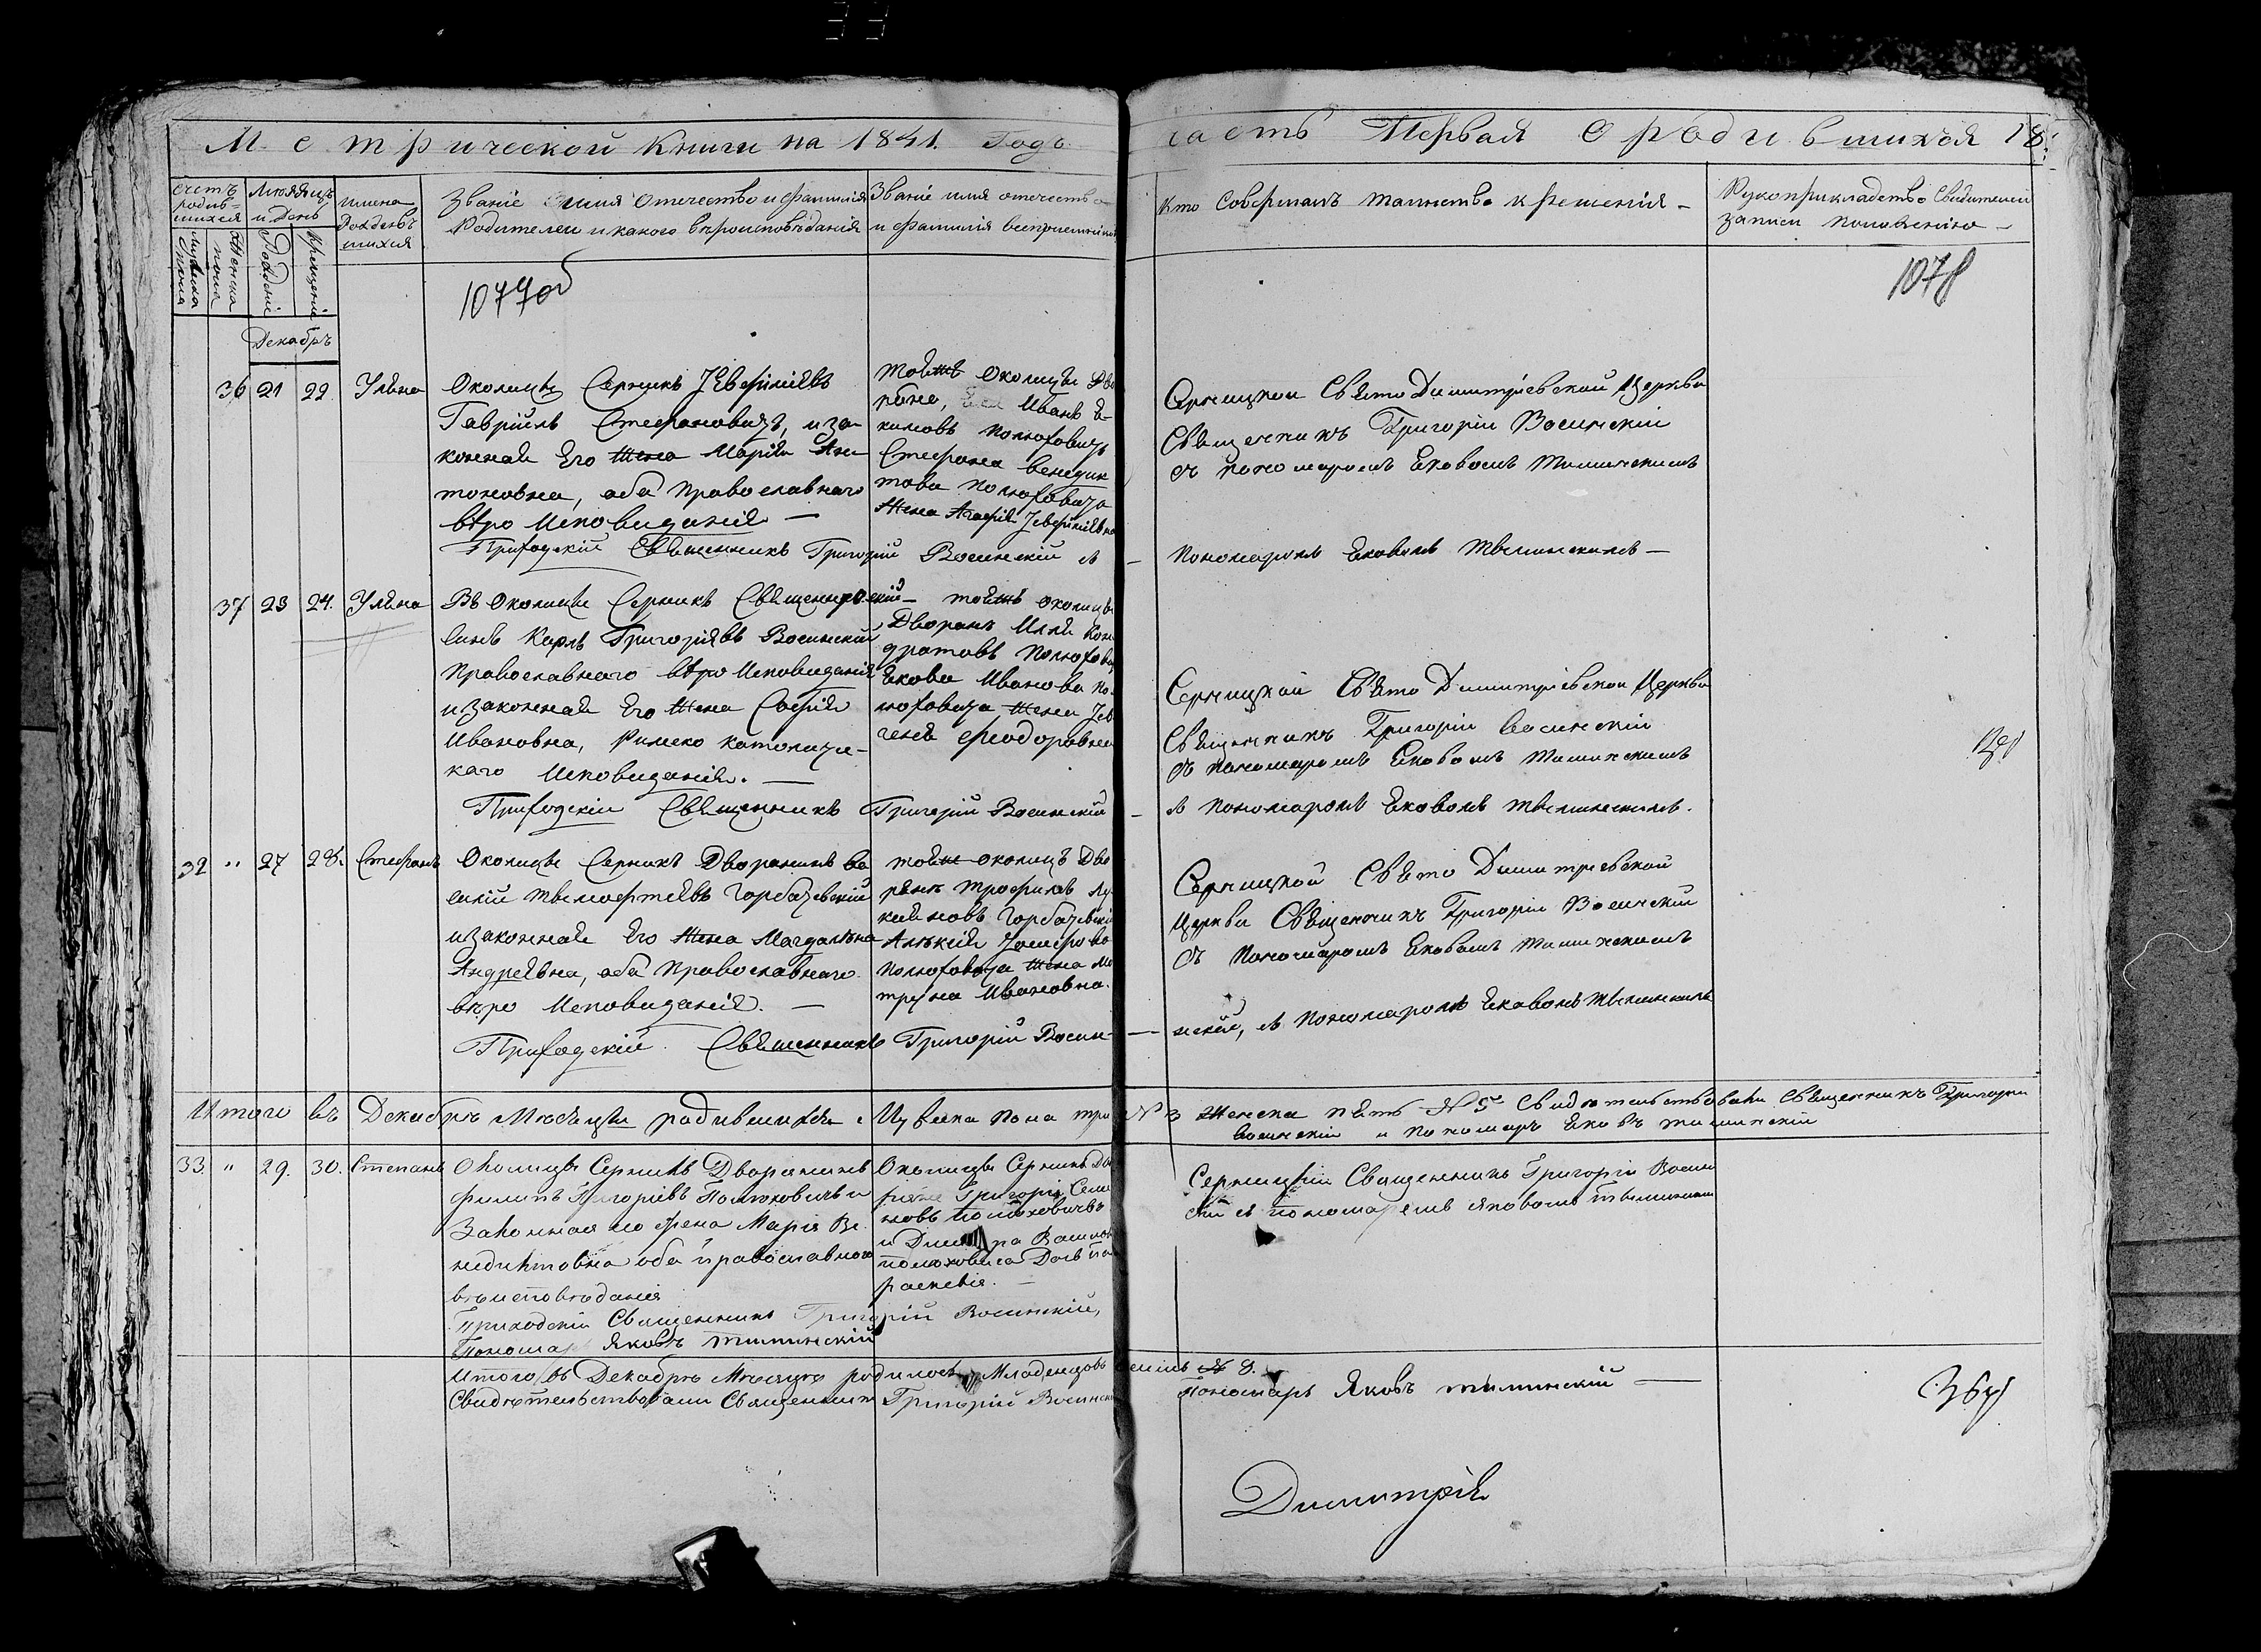 Метрической Книги на 1841. Годъ
часть Первая О родившихся 18
счетъ родив=шихся
Мужска полия
Женска полия
Мѣсяцъ и День
Рожденіе
Крещеніе
имена Рожденъшихся
Званіе имя Отечество и фамилія
Родителей и какого вѣроисповѣданія
Званіе имя отечество
и фамилія воспріемниковъ
Кто совершалъ таинство крещенія –
Рукоприкладство Свидителей
записи по желанію –
1077об
1078
Декабръ
36 21 22 Уляна
Околицы Серникъ
Гавріилъ Стефановичъ, и за-
конная Его Жена Марія Ан-
тоновна, оба православнаго
вѣро Исповиданія —
тойже Околицы Дво
ране, Иванъ Е-
кимовъ Полюховичъ
Стефана венедик
това Полюховича
Жена Агафія
Серницкой Свято Димитріевской Церкви
Священникъ Григорій Восинскій
съ пономаромъ Ековомъ Тиминскимъ
Приходскій Священникъ Григорій Восинскій съ
– Пономаромъ Ековомъ Тиминскимъ —
37 23 24. Уляна
Въ Околицы Серникъ Священическій
синъ Карлъ Григоріявъ Восинскій
Православнаго вѣро Исповиданія
и законная Его Жена Софія
Ивановна, Римско католиче-
каго Исповиданія. —
– тойжъ околицы
Дворянъ Илля Кон
дратовъ Полюхови
Екова Иванова По-
люховича Жена Jев
геня Феодоровна
Серницкой Свято Димитріевской Церкви
Священникъ Григорій Восинскій
съ пономаромъ Ековомъ Тиминскимъ
Приходскій Священникъ Григорій Восинскій
– съ Пономаромъ Ековомъ Тиминскимъ.
32 " 27 28. Стефанъ
Околицы Серникъ Дворанинъ Ва
силій Тимофтеявъ Горбачевскій
и законная Его Жена Магдалѣна
Андреявна, оба Православнаго
вѣро Исповиданія. —
тойже околицъ Дво
рянъ Трофимъ Лу
кіяновъ Горбачевскі
Алъксій Jосифово
Полюховича Жена Ма
трѣна Ивановна.
Серницкой Свято Димитревской
Церкви Священникъ Григорій Восинскій
съ Пономаромъ Ековомъ Тиминскимъ
Приходскій Священникъ Григорій Восин-
– нскій, съ Пономаромъ Ековомъ Тиминскимъ
Итого въ Декабръ Мѣсяцы родившихся Мужска пола три № 3 Женска пять № 5 Свидѣтельствовали Священникъ Григорій
Восинскій и Пономаръ Ековъ Тиминскій
33. " 29. 30. Степанъ
Околицы Серникъ Дворанинъ
Филипъ Григоріевъ Полюховичъ и
Законная его жена Марія Ве
недиктовна оба православного
вѣроисповѣданія
Околицы Серникъ Дво
ране Григорій Семе
новъ Полюховичъ
и Димитра
полюховича Дочь Па
раскевія. —
Серницкій Священникъ Григорій Восин
скій съ пономаремъ Яковомъ Тиминскимъ
Приходскій Священникъ Григорій Восинскій,
Пономарь Яковъ Тиминскій
Итого въ Декабрѣ Мѣсяцѣ родилось Младенцовъ № 8.
Свидѣтельствовали Священникъ Григорій Восинскій
Пономарь Яковъ Тиминскій —
Димитрія